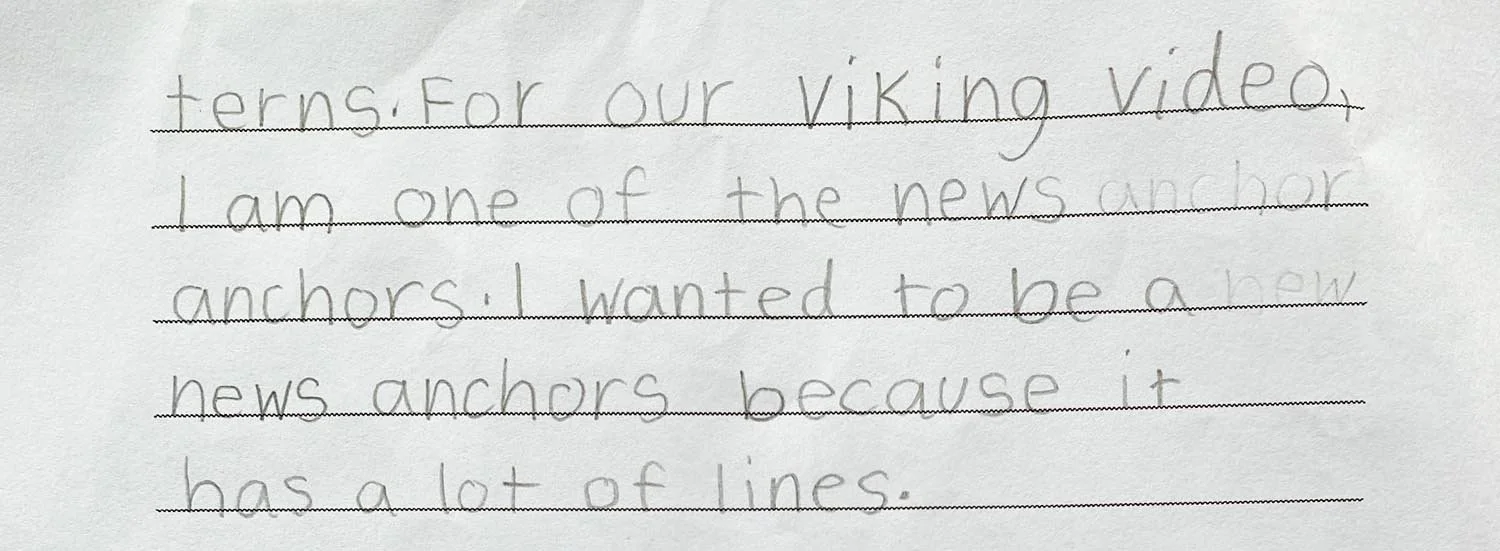 terns. For our viking video,
I am one of the news anchor
anchors. I wanted to be a new
news anchors because it
has a lot of lines.